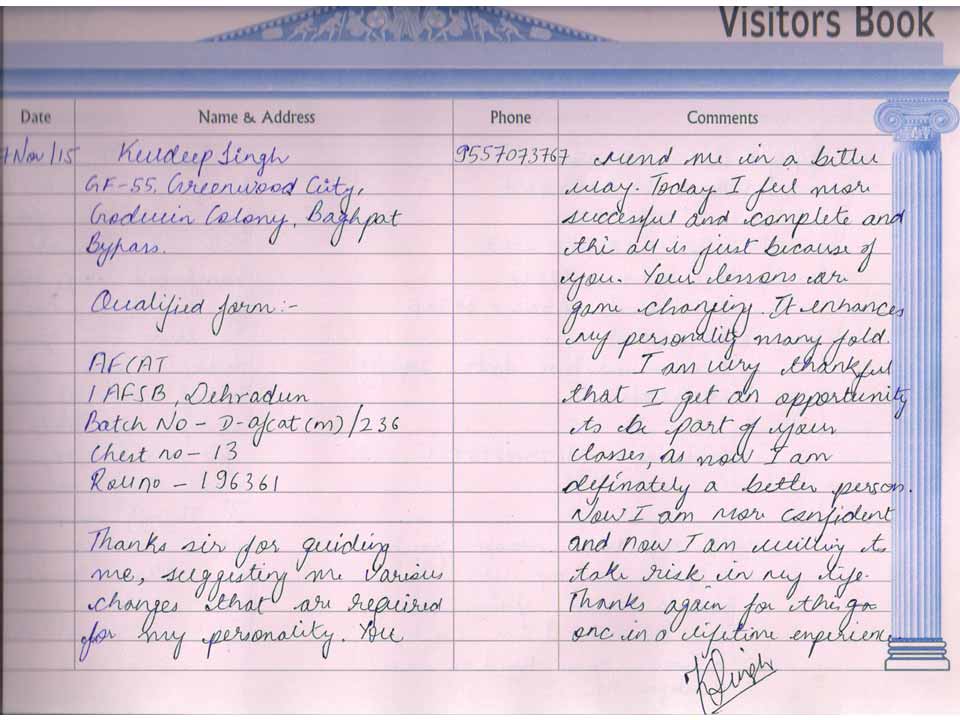 Visitors Book
Date Name & Address Phone Comments
7 Nov/15 Kuldeep Singh 9557073767
GF-55, Greenwood City,
Godwin Colony, Baghpat
Bypass.
Qualified form:-
AFCAT
1 AFSB, Dehradun
Batch No - D-afcat(m)/236
Chest no - 13
Roll no - 196361
Thanks sir for guiding
me, suggesting me various
changes that are required
for my personality. You
mend me in a better
way. Today I feel more
succesful and complete and
thi all is just because of
you. Your lessons are
game changing. It enhances
my personality many fold.
I am very thankful
that I get an opportunity
to be part of your
classes, as now I am
definately a better person.
Now I am more confident
and now I am willing to
take risk in my life.
Thanks again for this
once in a lifetime experience
KSingh